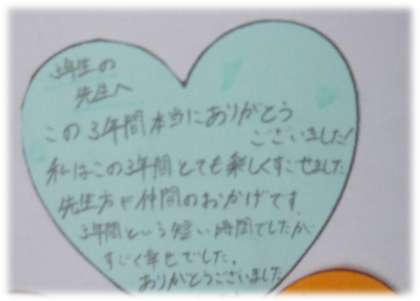 3年生の
先生へ
この3年間本当にありがとう
ございました!
私はこの3年間とても楽しくすごせました
先生方や仲間のおかげです
3年間という短い時間でしたが
すごく幸せでした。
ありがとうございました